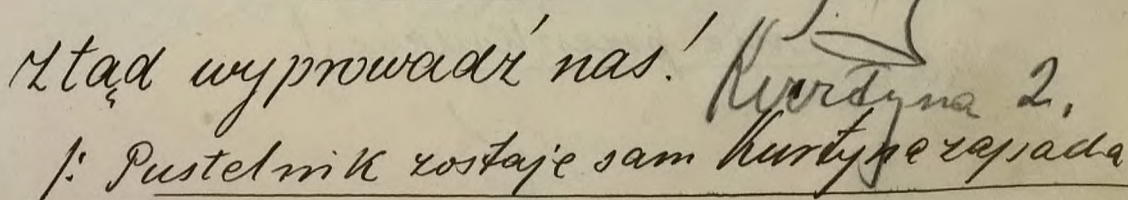 ztąd wyprowadź nas! Kurtyna 2.
/: Pustelnik zostaje sam Kurtyna zapada